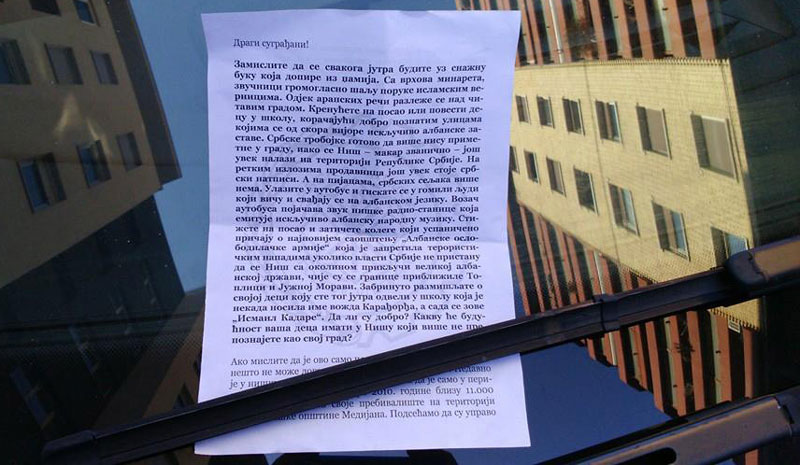 Драги суграђани!
Замислите да се свакога јутра будите уз снажну
буку која допире из џамија. Са врхова минарета,
звучници громогласно шаљу поруке исламским вер-
ницима. Одјек арапских речи разлеже се над чи-
тавим градом. Кренућете на посао или повести де-
цу у школу, корачајући добро познатим улицама
којима се од скора вијоре искључиво албанске за-
ставе. Србске тробојке готово да више нису приме-
тне у граду, иако се Ниш – макар званично – још
увек налази на територији Републике Србије. На
ретким излозима продавница још увек стоје срб-
ски натписи. А на пијацама, србских сељака више
нема. Улазите у аутобус и тискате се у гомили људи
који вичу и свађају се на албанском језику. Возач
аутобуса појачава звук нишке радио-станице која
емитује искључиво албанску народну музику. Сти-
жете на посао и затичете колеге који успаничено
причају о најновијем саопштењу „Албанске осло-
бодилачке армије“ која је запретила терористи-
чким нападима уколико власти Србије не пристану
да се Ниш са околином прикључи великој алба-
нској држави, чије су се границе приближиле То-
плици и Јужној Морави. Забринуто размишљате о
својој деци коју сте тог јутра одвели у школу која је
некада носила име вожда Карађорђа, а сада се зове
„Исмаил Кадаре“. Да ли су добро? Какву ће буду-
ћност ваша деца имати у Нишу који више не пре-
познајете као свој град?
Ако мислите да је ово само
нешто не може
је у да је само у пери-
2010. године близу 11.000
своје пребивалиште на територији
општине Медијана. Подсећамо да су управо